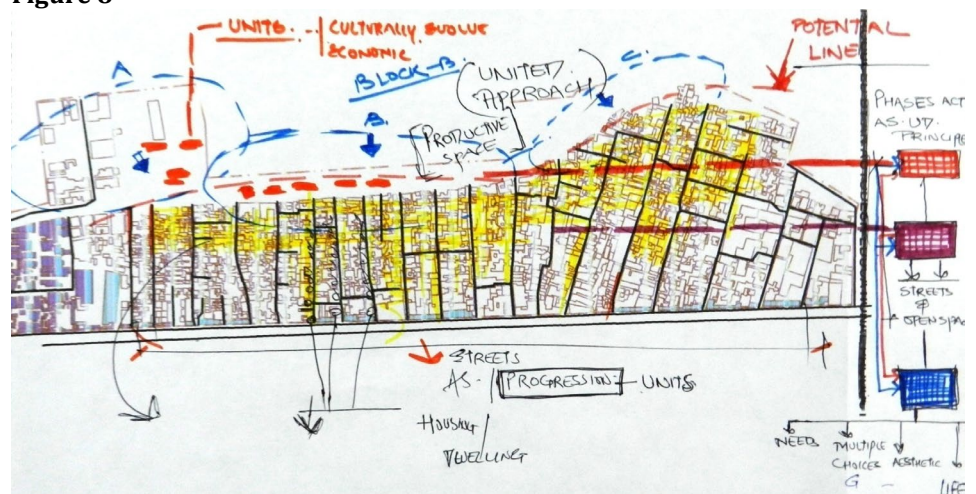 Figure 8
UNITS.
CULTURALLY EVOLVE
ECONOMIC
POTENTIAL
LINE
A
BLOCK-B.
(UNITED.
APPROACH)
C.
B.
PRODUCTIVE
SPACE
PHASES ACT
AS UD.
PRINCIPE
STREETS
&
OPENSPAC
STREETS
AS. PROGRESSION UNITS
HOUSING/
DWELLING
NEED
MULTIPLE
CHOICES
AESTHETIC
LIFE
G